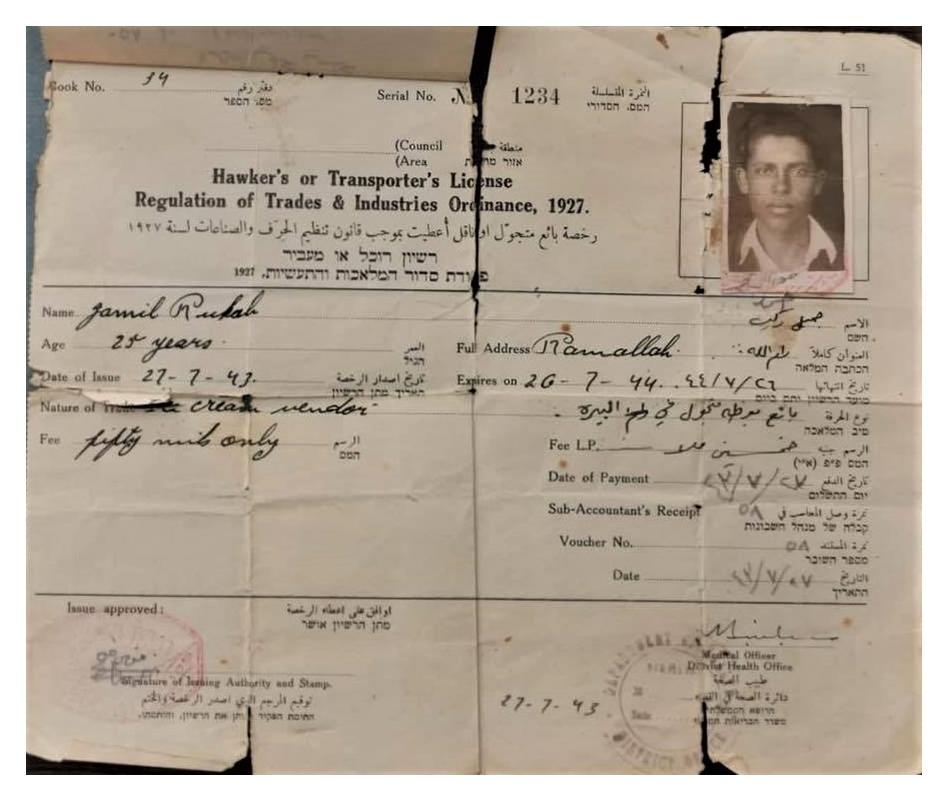 L. 51
Book No. 34 دفتر رقم
מס. הספר
Serial No. N 1234 النمرة المتسلسلة
המס. הסדורי
(Council منطقة
(Area אזור
Hawker's or Transporter's License
Regulation of Trades & Industries Ordinance, 1927.
رخصة بائع متجوّل او ناقل أعطيت بموجب قانون تنظيم الحِرَف والصناعات لسنة ١٩٢٧
רשיון רוכל או מעביר
פקודת סדור המלאכות והתעשיות, 1927
Name Jamil Rukab جميل ركب الاسم
השם
Age 25 years العمر
הגיל
Full Address Ramallah. رام الله العنوان كاملاً
הכתבה המלאה
Date of Issue 27-7-43. تاريخ اصدار الرخصة
תאריך מתן הרשיון
Expires on 26-7-44. ٤٤/٧/٢٦ تاريخ انتهائها
מועד הרשיון ותם ביום
Nature of Trade cream vendor
بائع متجول في البيره نوع الحرفة
טיב המלאכה
Fee fifty mils only الرسم
המס
Fee L.P. الرسم جنيه
המס פ״פ (א״י)
Date of Payment ٤٣/٧/٢٧ تاريخ الدفع
יום התשלום
Sub-Accountant's Receipt ٥٨ نمرة وصل المحاسب في
קבלה של מנהל חשבונות
Voucher No. ٥٨ نمرة المستند
מספר השובר
Date ٤٣/٧/٢٧ التاريخ
התאריך
Issue approved: اوافق على اعطاء الرخصة
מתן הרשיון אושר
Signature of Issuing Authority and Stamp.
توقيع المرجع الذي اصدر الرخصة والختم
חתימת הפקיד נותן את הרשיון, וחותמתו.
27-7-43
Medical Officer
District Health Office
طبيب الصحة
دائرة الصحة في اللواء
הרופא הממשלתי
משרד הבריאות
DEPARTMENT
DISTRICT